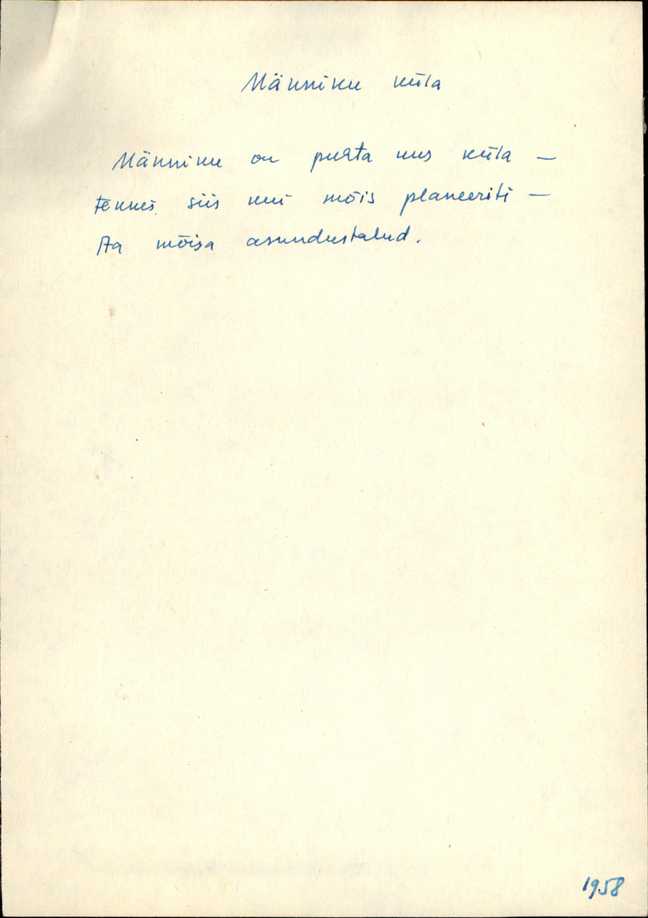 Männiku küla
Männiku on puhta uus küla —
tekkis siis kui mõis planeeriti —
Aa mõisa asundustalud.
1958